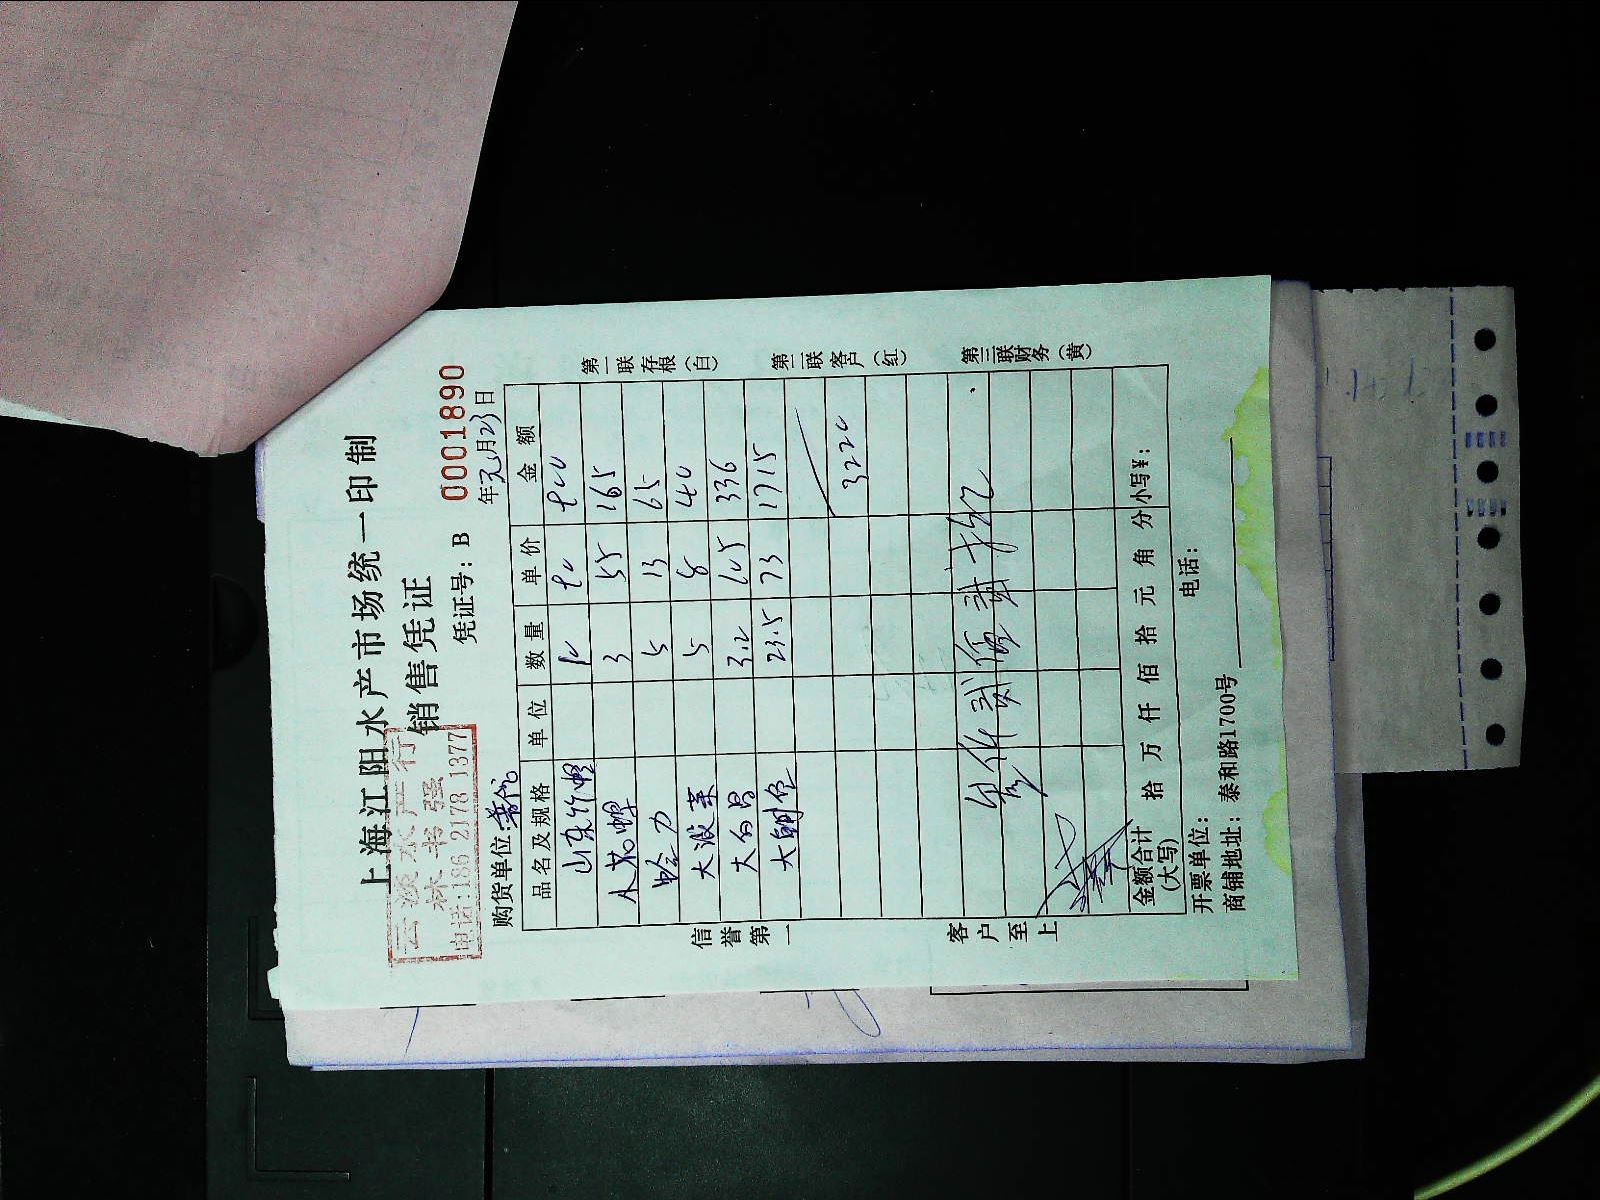 上海江阳水产市场统一印制
销售凭证
云淡水产行
林书强
电话:186 2178 1377
凭证号: B 0001890
购货单位: 年元月23日
品名及规格 单位 数量 单价 金额
山东竹蛏 10 90 900
花螺 3 55 165
5 13 65
大波 5 8 40
大白昌 3.2 105 336
大 23.5 73 1715
3220
叁仟贰佰贰拾
金额合计(大写) 拾 万 仟 佰 拾 元 角 分 小写¥:
开票单位: 电话:
商铺地址: 泰和路1700号
信誉第一
客户至上
第一联存根(白)
第二联客户(红)
第三联财务(黄)